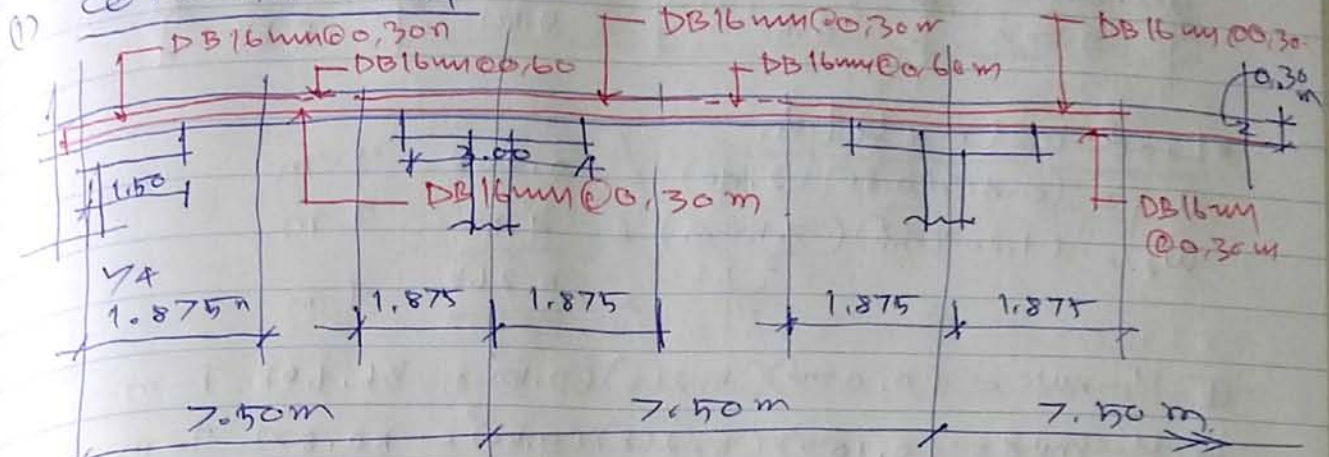 (1)
DB16mm@0,30m
DB16mm@0,30m
DB16mm@0,30
DB16mm@0,60
DB16mm@0,60m
0,30
m
3.00
1.50
DB16mm@0,30m
DB16mm
@0,30m
1.875m
1.875
1.875
1.875
1.875
7.50m
7.50m
7.50m